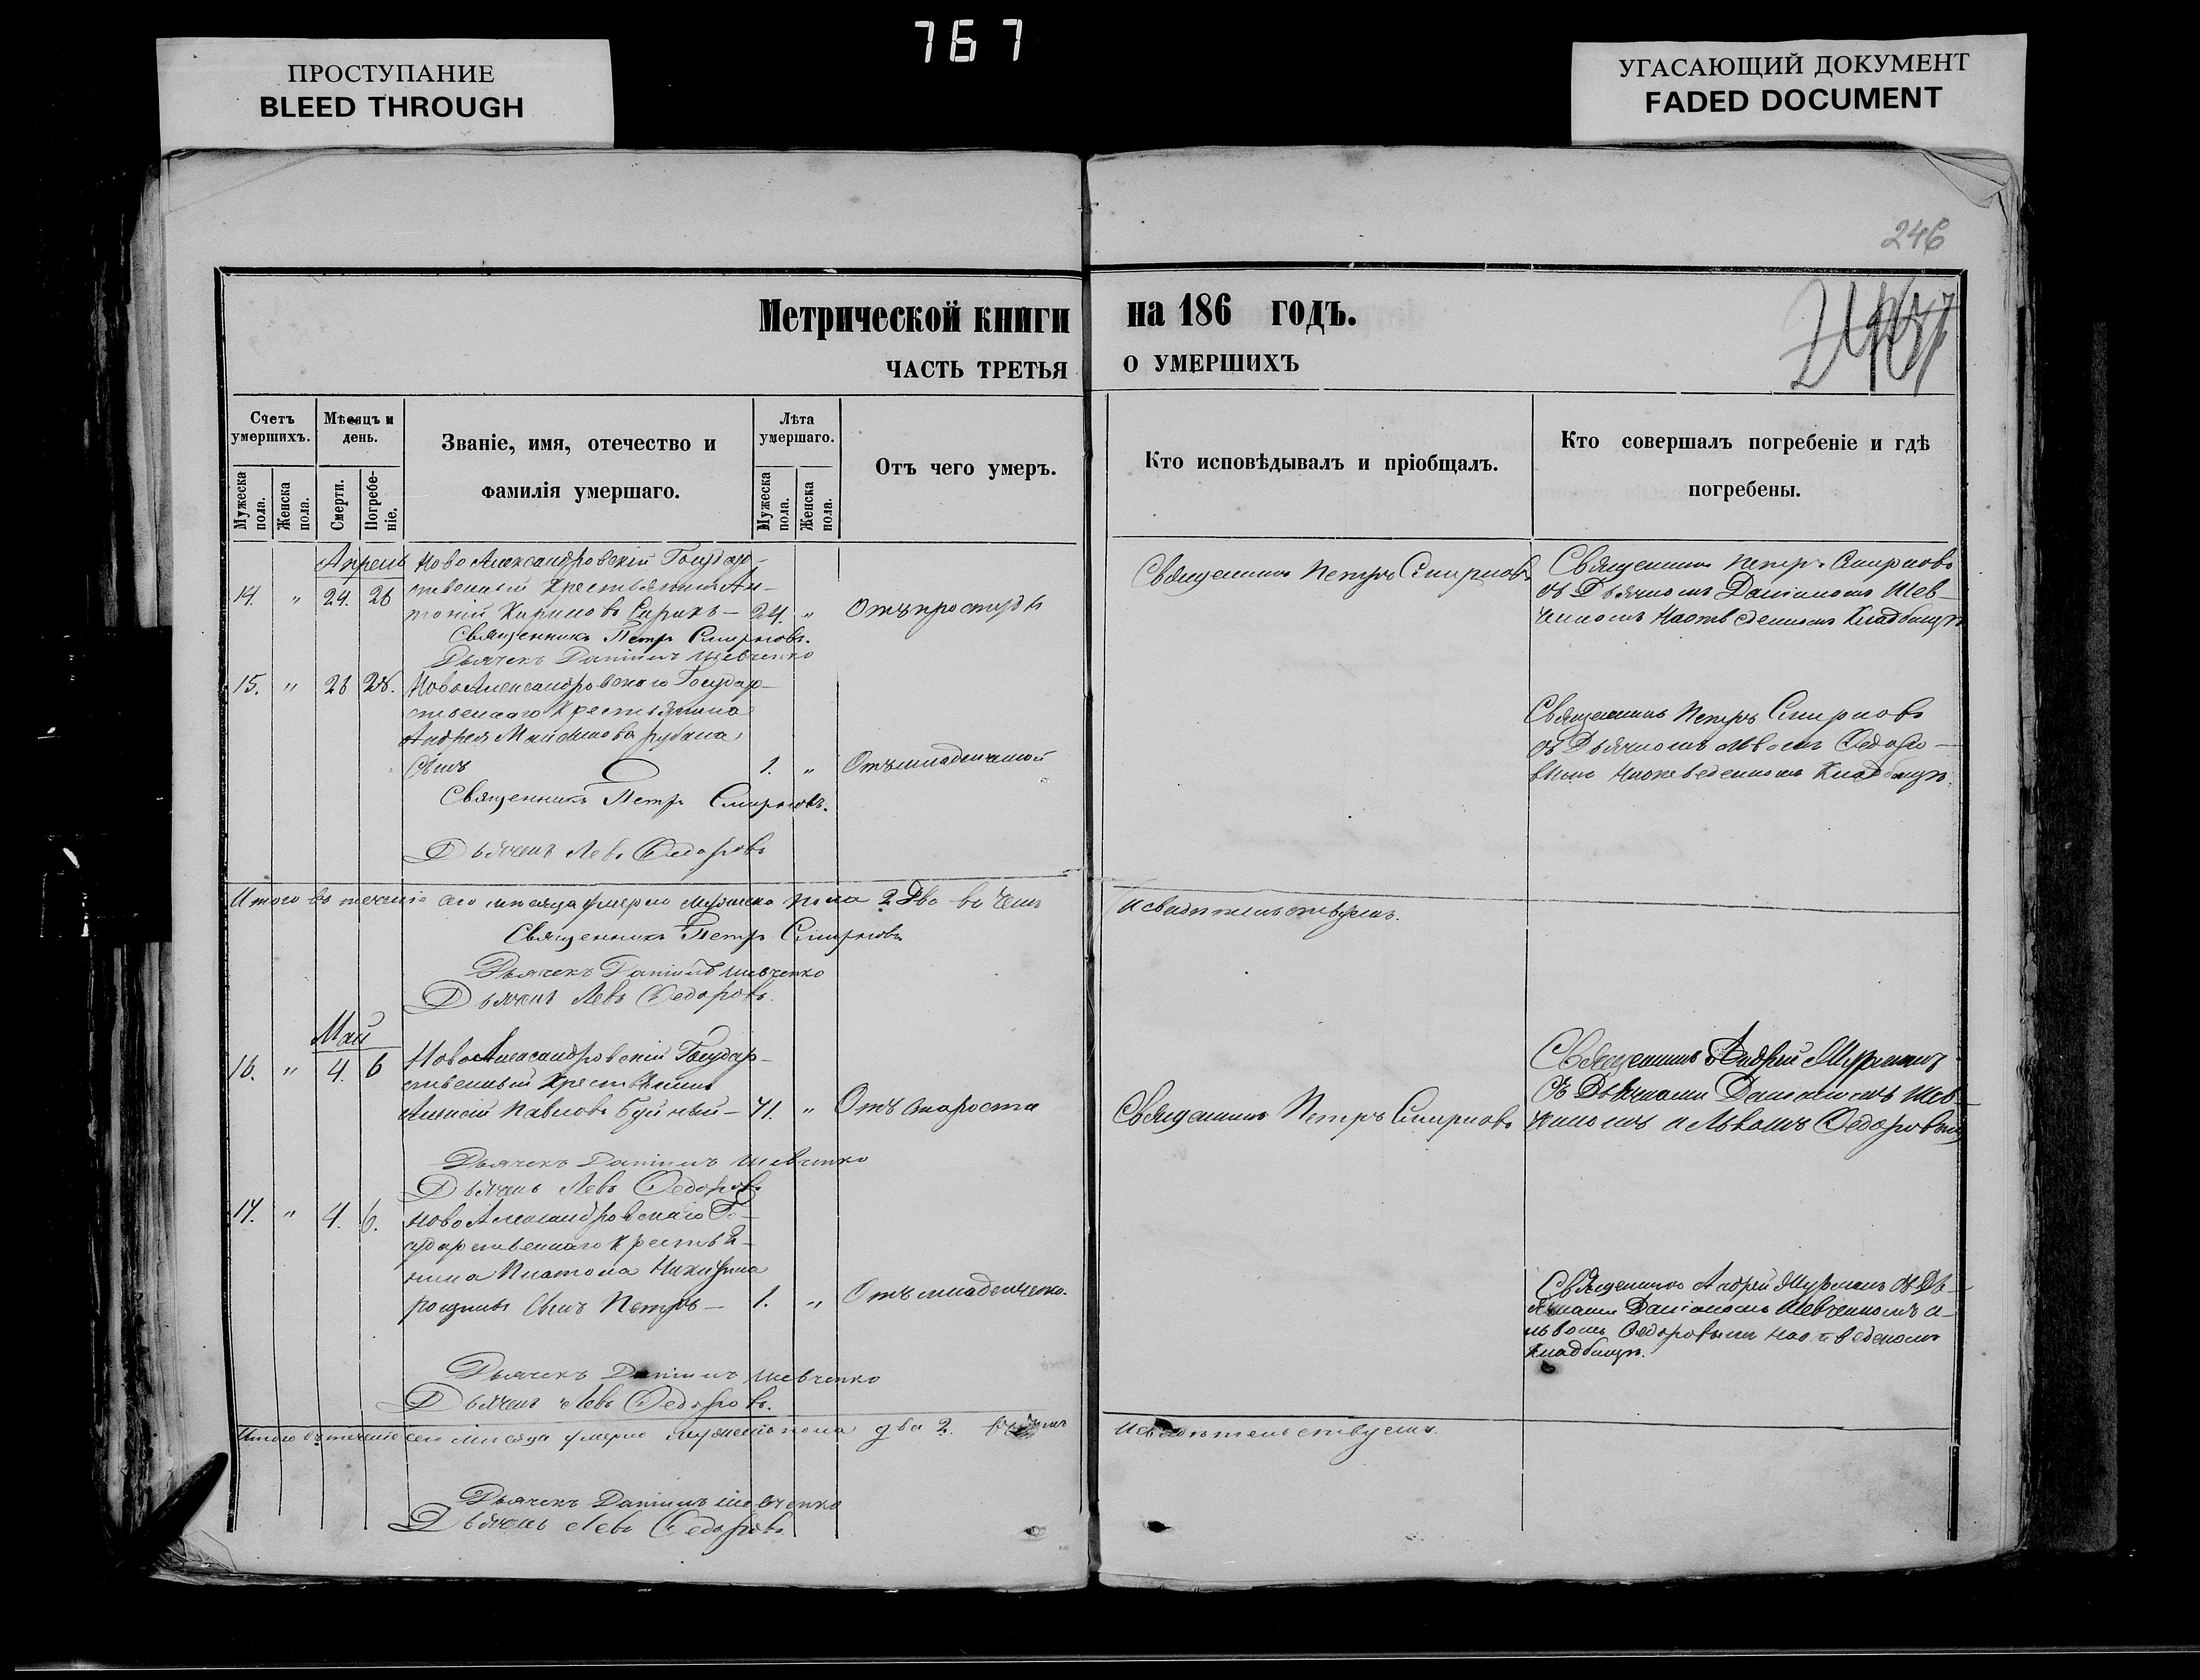 767
ПРОСТУПАНИЕ
BLEED THROUGH
УГАСАЮЩИЙ ДОКУМЕНТ
FADED DOCUMENT
246
Метрической книги на 186 годъ.
ЧАСТЬ ТРЕТЬЯ О УМЕРШИХЪ
Счетъ умершихъ.
Мѣсяцъ и день.
Званіе, имя, отечество и фамилія умершаго.
Лѣта умершаго.
Отъ чего умеръ.
Кто исповѣдывалъ и пріобщалъ.
Кто совершалъ погребеніе и гдѣ погребены.
Мужеска пола.
Женска пола.
Смерти.
Погребеніе.
Мужеска пола.
Женска пола.
Апрель
НовоАлександровскій Государ-
14. " 24. 26
ственный Крестьянинъ Ан-
тоній Кириловъ - 24. " Отъ простуды
Священникъ Петръ Смирновъ
Священникъ Петръ Смирновъ
съ Дьячкомъ Даніиломъ Шев-
ченкомъ Кладбищѣ
Священникъ Петръ Смирновъ.
Дьячекъ Даніилъ Шевченко
15. " 26 28. НовоАлександровского Государ-
ственнаго Крестьянина
Андрея
сынъ 1. " Отъ младенческой
Священникъ Петръ Смирновъ
съ Дьячкомъ Львомъ Федоро-
вымъ Кладбищѣ.
Священникъ Петръ Смирновъ.
Дьячекъ Левъ Федоровъ
Итого въ теченіе сего мѣсяца умерло мужеска пола 2 два въ чемъ
и свидѣтельствуемъ.
Священникъ Петръ Смирновъ
Дьячекъ Даніилъ Шевченко
Дьячекъ Левъ Федоровъ.
Май
16. " 4. 6 НовоАлександровскій Государ-
ственный Крестьянинъ
Алексій Павловъ Буйный - 71. " Отъ старости
Священникъ Петръ Смирновъ
Священникъ Андрей
съ Дьячками Даніиломъ Шев-
ченкомъ и Львомъ Федоровымъ
Дьячекъ Даніилъ Шевченко
Дьячекъ Левъ Федоровъ
17. " 4. 6. НовоАлександровскаго Го-
сударственнаго Крестья-
нина Платона Никифора
сынъ Петръ - 1. " Отъ младенческо.
Священникъ Андрей съ Дь-
ячками Даніиломъ Шевченкомъ и
Львомъ Федоровымъ на отведеномъ
кладбищѣ.
Дьячекъ Даніилъ Шевченко
Дьячекъ Левъ Федоровъ.
Итого въ теченіе сего мѣсяца умерло мужеска пола два 2. въ чемъ
и свидѣтельствуемъ.
Дьячекъ Даніилъ Шевченко
Дьячекъ Левъ Федоровъ.